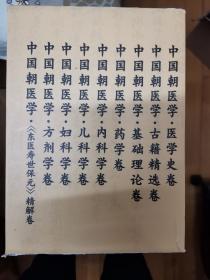 中国朝医学·医学史卷
中国朝医学·古籍精选卷
中国朝医学·基础理论卷
中国朝医学·药学卷
中国朝医学·内科学卷
中国朝医学·儿科学卷
中国朝医学·妇科学卷
中国朝医学·方剂学卷
中国朝医学·《东医寿世保元》精解卷